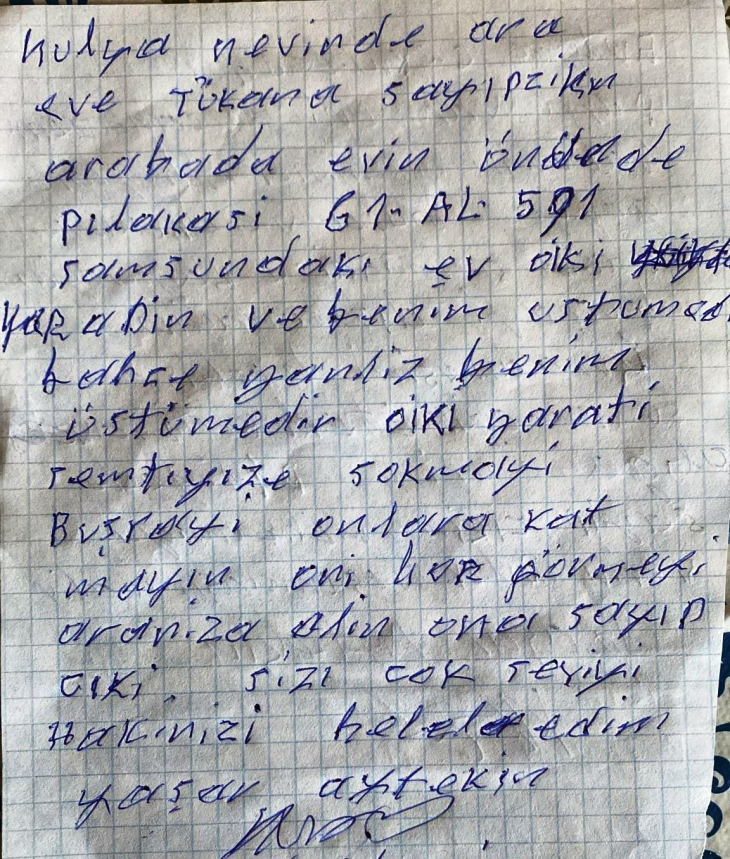 hulya nevinde ara
eve Tükana sayıpzikın
arabada evin önünde
pılakasi 61-AL 591
samsundakı ev oiki
yapabin ve benim ustume
bahçe yanliz benim
üstümedir oiki yarati
semtiyize sokmayi
Buşrayi onlara kat
mayın oni hor görmeyi
araniza alin ona sayıp
cıki. sizi cok seviyi
Hakinizi helal edim
yaşar aytekin